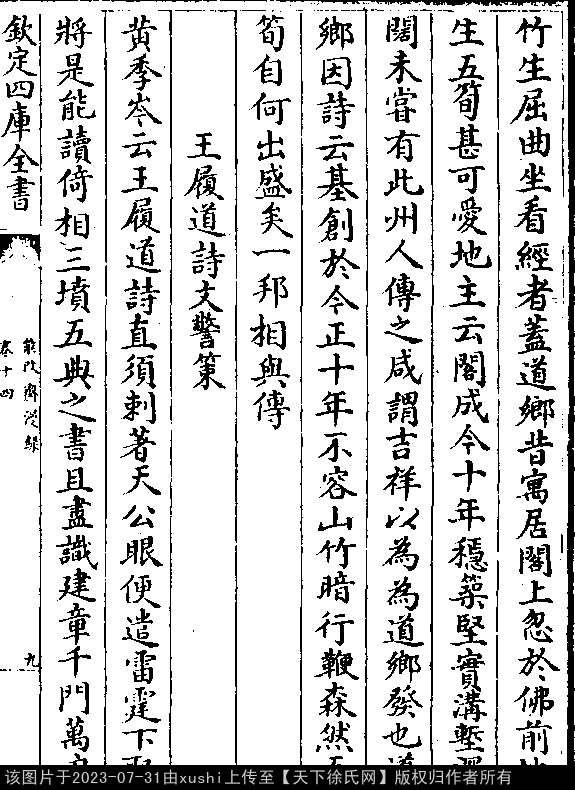 竹生屈曲坐看經者葢道鄉昔寓居閣上忽於佛前地
生五筍甚可愛地主云閣成今十年穩築堅實溝塹
闊未嘗有此州人傳之咸謂吉祥以為為道鄉發也道
鄉因詩云基創於今正十年不容山竹暗行鞭森然五
筍自何出盛矣一邦相與傳
王履道詩文警策
黄季岑云王履道詩直須剌著天公眼便遣雷霆下取
將是能讀倚相三墳五典之書且盡識建章千門萬户
欽定四庫全書
能改齋漫録
卷十四
九
该图片于2023-07-31由xushi上传至【天下徐氏网】版权归作者所有